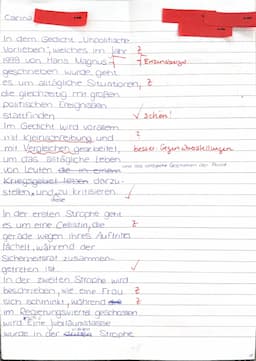 Carina
In dem Gedicht „Unpolitische
Vorlieben", welches im Jahr Z
1999 von Hans Magnus Enzensberger
geschrieben wurde geht
es um alltägliche Situationen, Z
die gleichzeitig mit großen
politischen Ereignissen
stattfinden. ✓ schön!
Im Gedicht wird vorallem ?
mit Kleinschreibung und
mit Vergleichen gearbeitet, besser: Gegenüberstellungen
um das alltägliche Leben
von Leuten die in einem
Kriegsgebiet leben darzu-
stellen, und zu kritisieren. ✓
diese
In der ersten Strophe geht
es um eine Cellistin, die Z
gerade wegen ihres Auftrittes
lächelt, während der
Sicherheitsrat zusammen-
getreten ist. ✓
In der zweiten Strophe wird
beschrieben, wie eine Frau Z
sich schminkt, während Z
im Regierungsviertel geschossen
wird. Eine
wurde in der Strophe